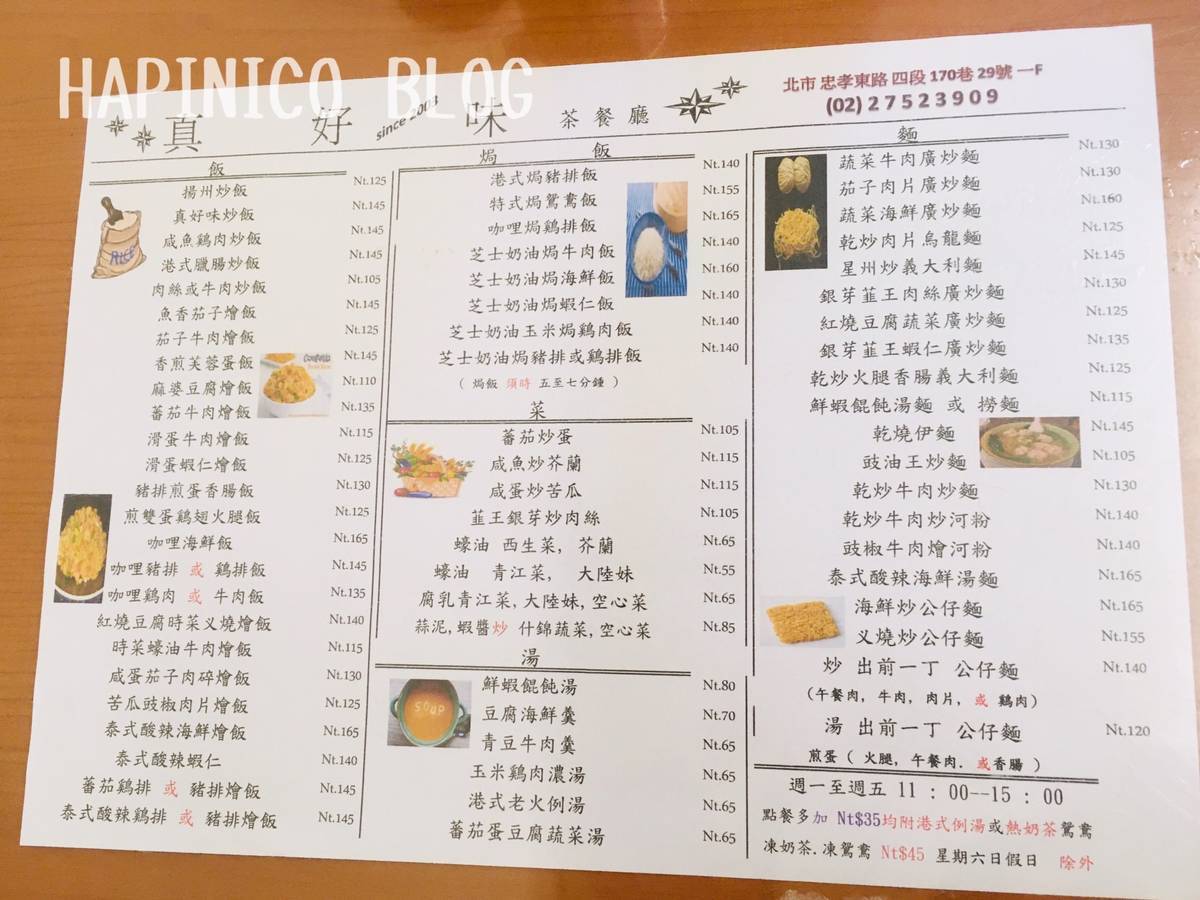 HAPINICO BLOG
真 好 味 茶餐廳
since 2003
北市 忠孝東路 四段 170巷 29號 一F
(02) 27523909
飯
揚州炒飯 Nt.125
真好味炒飯 Nt.145
咸魚鷄肉炒飯 Nt.145
港式臘腸炒飯 Nt.145
肉絲或牛肉炒飯 Nt.105
魚香茄子燴飯 Nt.145
茄子牛肉燴飯 Nt.125
香煎芙蓉蛋飯 Nt.145
麻婆豆腐燴飯 Nt.110
蕃茄牛肉燴飯 Nt.135
滑蛋牛肉燴飯 Nt.115
滑蛋蝦仁燴飯 Nt.125
豬排煎蛋香腸飯 Nt.130
煎雙蛋鷄翅火腿飯 Nt.125
咖哩海鮮飯 Nt.165
咖哩豬排 或 鷄排飯 Nt.145
咖哩鷄肉 或 牛肉飯 Nt.135
紅燒豆腐時菜义燒燴飯 Nt.140
時菜蠔油牛肉燴飯 Nt.115
咸蛋茄子肉碎燴飯 Nt.130
苦瓜豉椒肉片燴飯 Nt.125
泰式酸辣海鮮燴飯 Nt.165
泰式酸辣蝦仁 Nt.140
蕃茄鷄排 或 豬排燴飯 Nt.145
泰式酸辣鷄排 或 豬排燴飯 Nt.145
RICE
焗 飯
港式焗豬排飯 Nt.140
特式焗鴛鴦飯 Nt.155
咖哩焗鷄排飯 Nt.165
芝士奶油焗牛肉飯 Nt.140
芝士奶油焗海鮮飯 Nt.160
芝士奶油焗蝦仁飯 Nt.140
芝士奶油玉米焗鷄肉飯 Nt.140
芝士奶油焗豬排或鷄排飯 Nt.140
( 焗飯 須時 五至七分鍾 )
菜
蕃茄炒蛋 Nt.105
咸魚炒芥蘭 Nt.115
咸蛋炒苦瓜 Nt.115
韮王銀芽炒肉絲 Nt.105
蠔油 西生菜, 芥蘭 Nt.65
蠔油 青江菜, 大陸妹 Nt.55
腐乳青江菜, 大陸妹, 空心菜 Nt.65
蒜泥, 蝦醬炒 什錦蔬菜, 空心菜 Nt.85
湯
SOUP
鮮蝦餛飩湯 Nt.80
豆腐海鮮羹 Nt.70
青豆牛肉羹 Nt.65
玉米鷄肉濃湯 Nt.65
港式老火例湯 Nt.65
蕃茄蛋豆腐蔬菜湯 Nt.65
麵
蔬菜牛肉廣炒麵 Nt.130
茄子肉片廣炒麵 Nt.130
蔬菜海鮮廣炒麵 Nt.160
乾炒肉片烏龍麵 Nt.125
星州炒義大利麵 Nt.145
銀芽韮王肉絲廣炒麵 Nt.130
紅燒豆腐蔬菜廣炒麵 Nt.125
銀芽韮王蝦仁廣炒麵 Nt.135
乾炒火腿香腸義大利麵 Nt.125
鮮蝦餛飩湯麵 或 撈麵 Nt.115
乾燒伊麵 Nt.145
豉油王炒麵 Nt.105
乾炒牛肉炒麵 Nt.130
乾炒牛肉炒河粉 Nt.140
豉椒牛肉燴河粉 Nt.140
泰式酸辣海鮮湯麵 Nt.165
海鮮炒公仔麵 Nt.165
义燒炒公仔麵 Nt.155
炒 出前一丁 公仔麵 Nt.140
(午餐肉, 牛肉, 肉片, 或 鷄肉)
湯 出前一丁 公仔麵 Nt.120
煎蛋 ( 火腿, 午餐肉. 或香腸 )
週一至週五 11 : 00--15 : 00
點餐多加 Nt$35均附港式例湯或熱奶茶鴛鴦
凍奶茶.凍鴛鴦 Nt$45 星期六日假日 除外